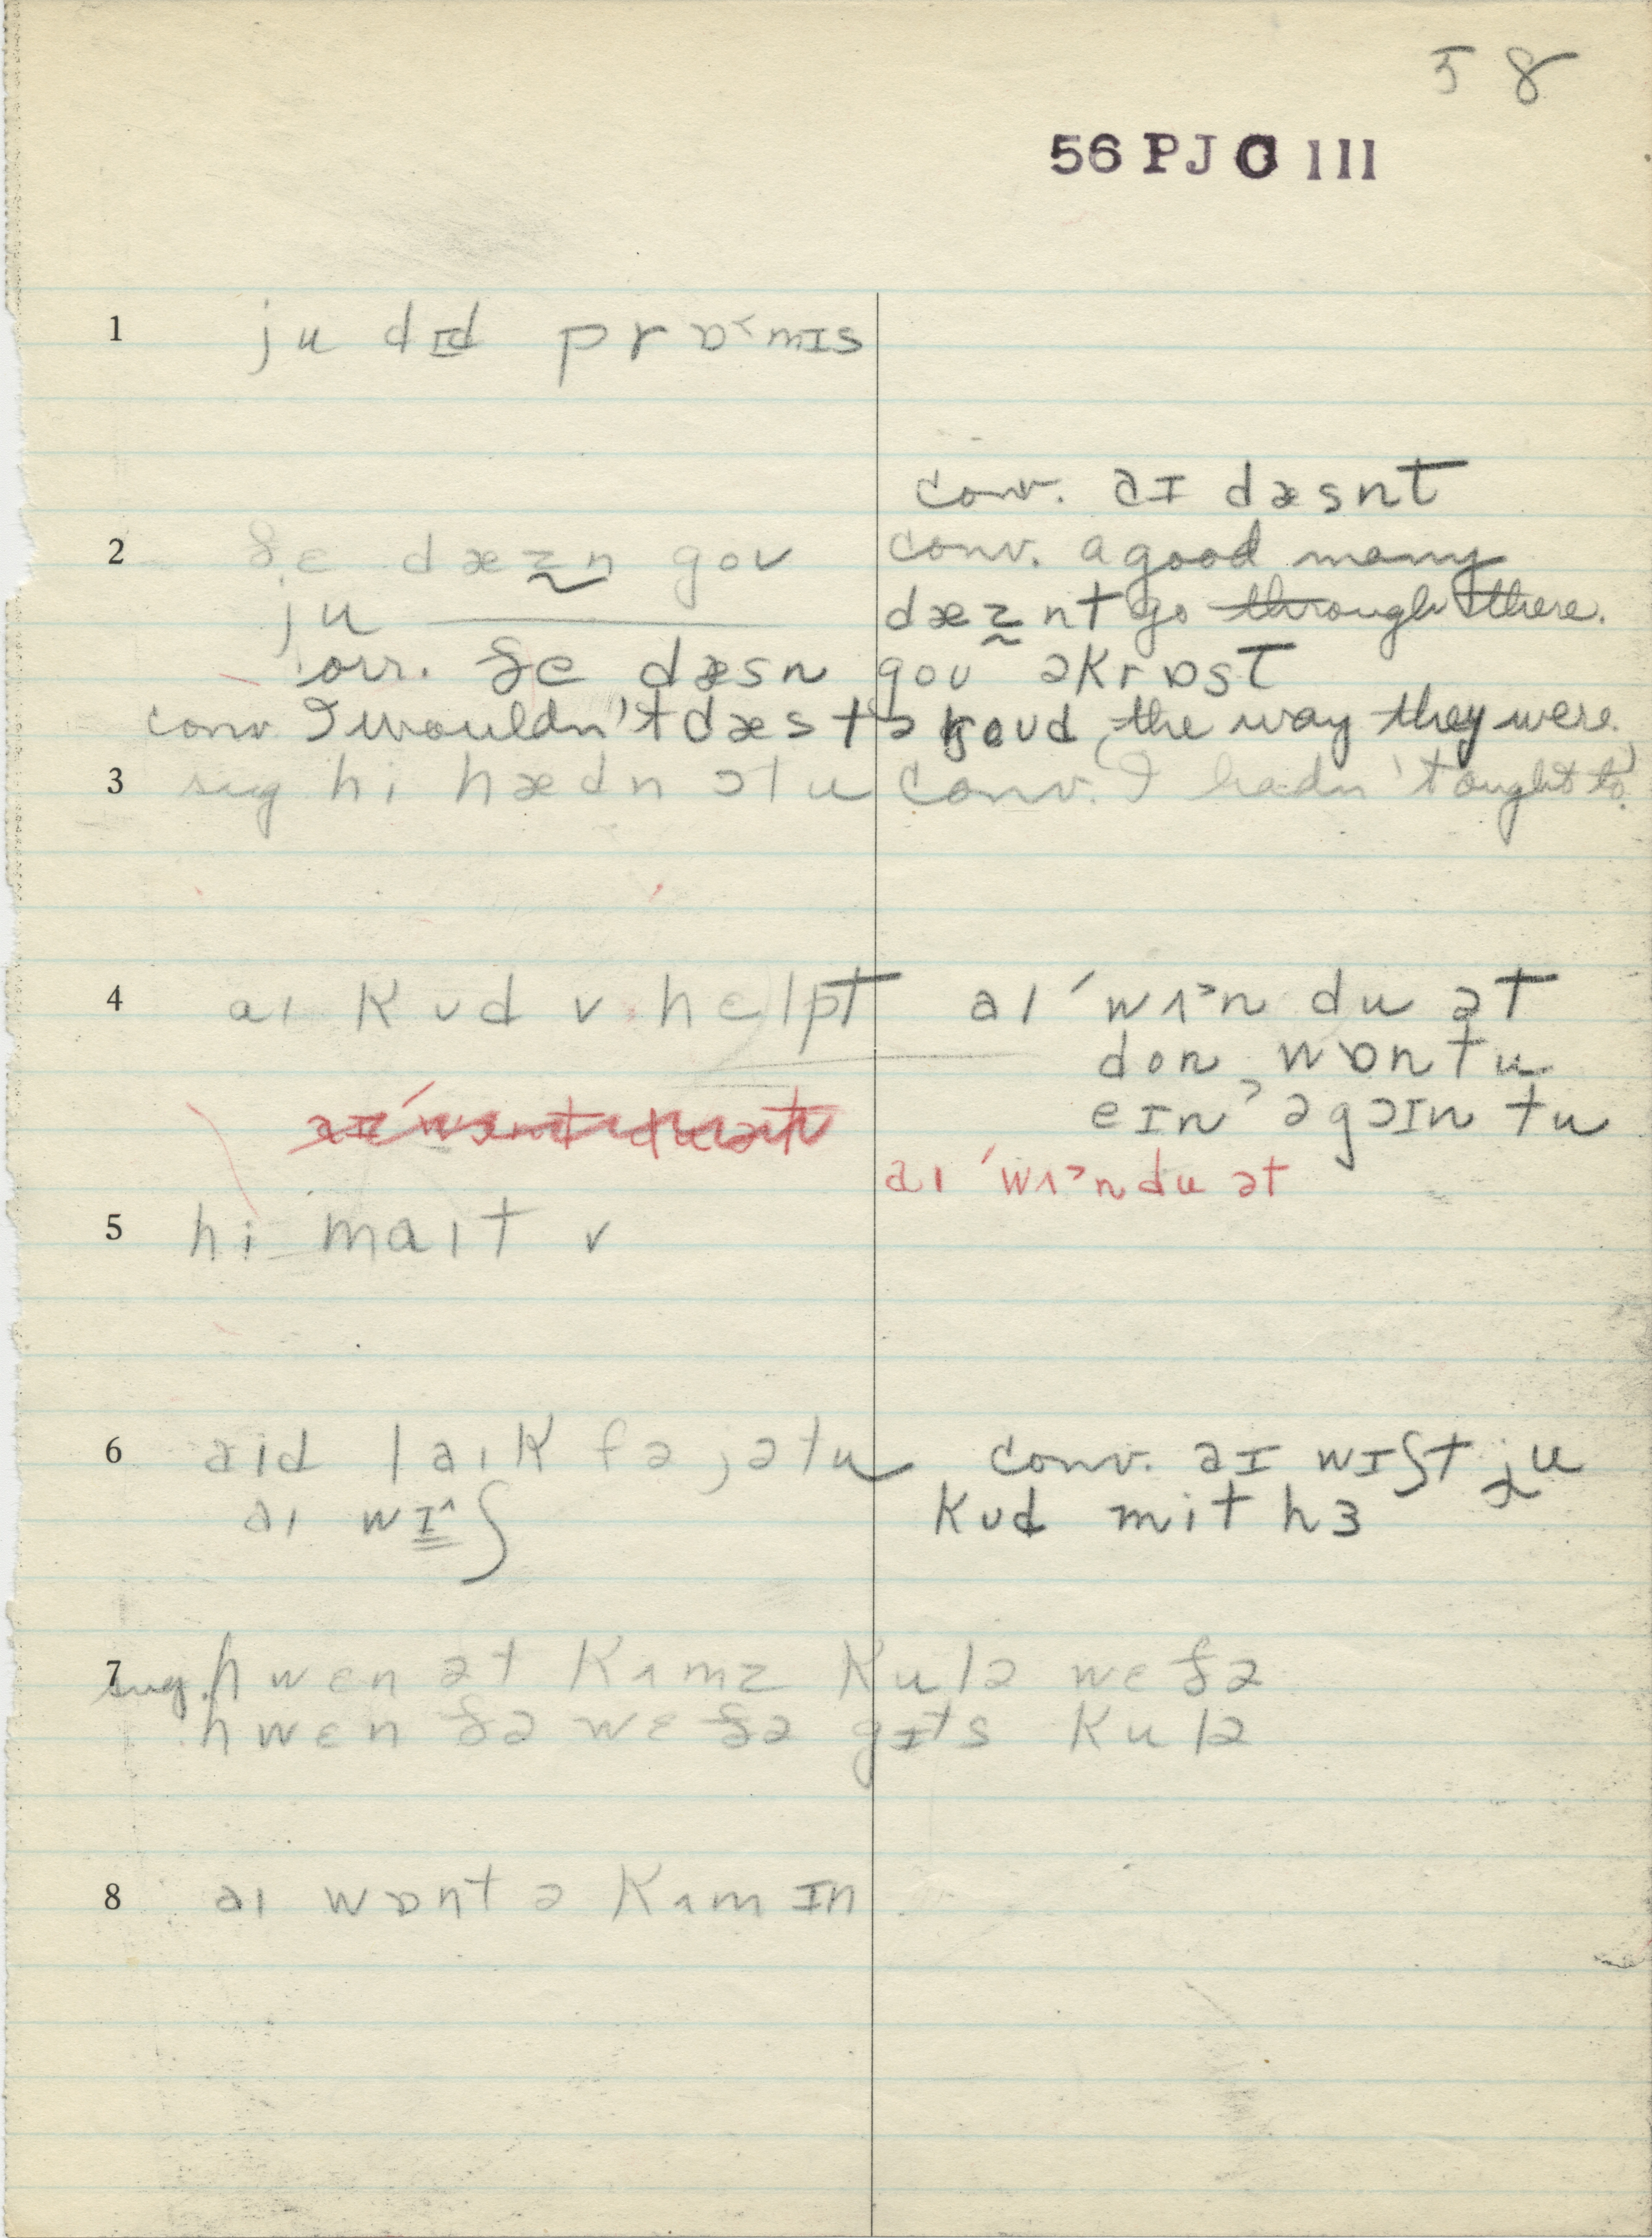 58
56 PJC III
1 ju dɪd prɒ˂mɪs
conv. aɪ dæsnt
2 ðɛ dæz̰n goʊ conv. a good many
ju dæz̰nt go through there.
corr. ðe dæsn goʊ əkrɒst
conv. I wouldn't dæs tə goʊd, the way they were.
3 sug hi hædn ɔtu conv. I hadn't ought to.
4 aɪ kʊd v helpt aɪ ˈwʌ˃n du ət
don wɒn tu
eɪn˃ əgəɪn tu
aɪ ˈwʌ˃n du ət
5 hi maɪt v
6 aɪd laɪk fə jə tu conv. aɪ wɪʃt ju
aɪ wɪ˄ʃ kʊd mit hɜ
7 sug. hwɛn ət kʌmz kulə wɛðə
hwɛn ðə wɛðə gɪts kulə
8 aɪ wɒnt ə kʌm ɪn